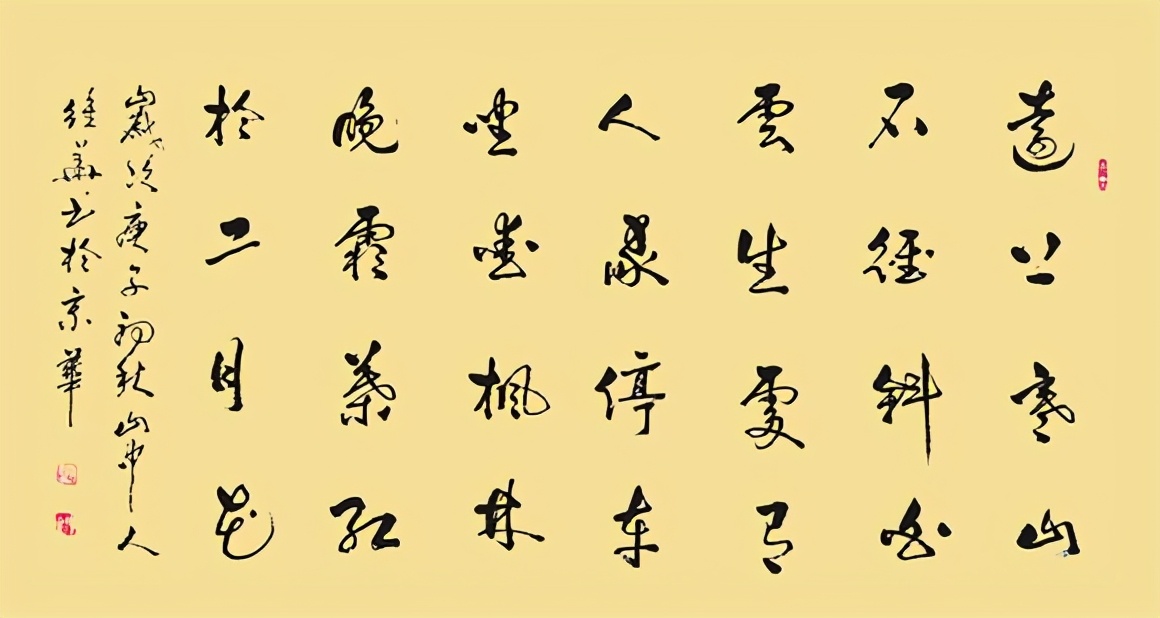 遠上寒山
石徑斜白
雲生處有
人家停車
坐愛楓林
晚霜葉紅
於二月花
歲次庚子初秋山中人
華書於京華